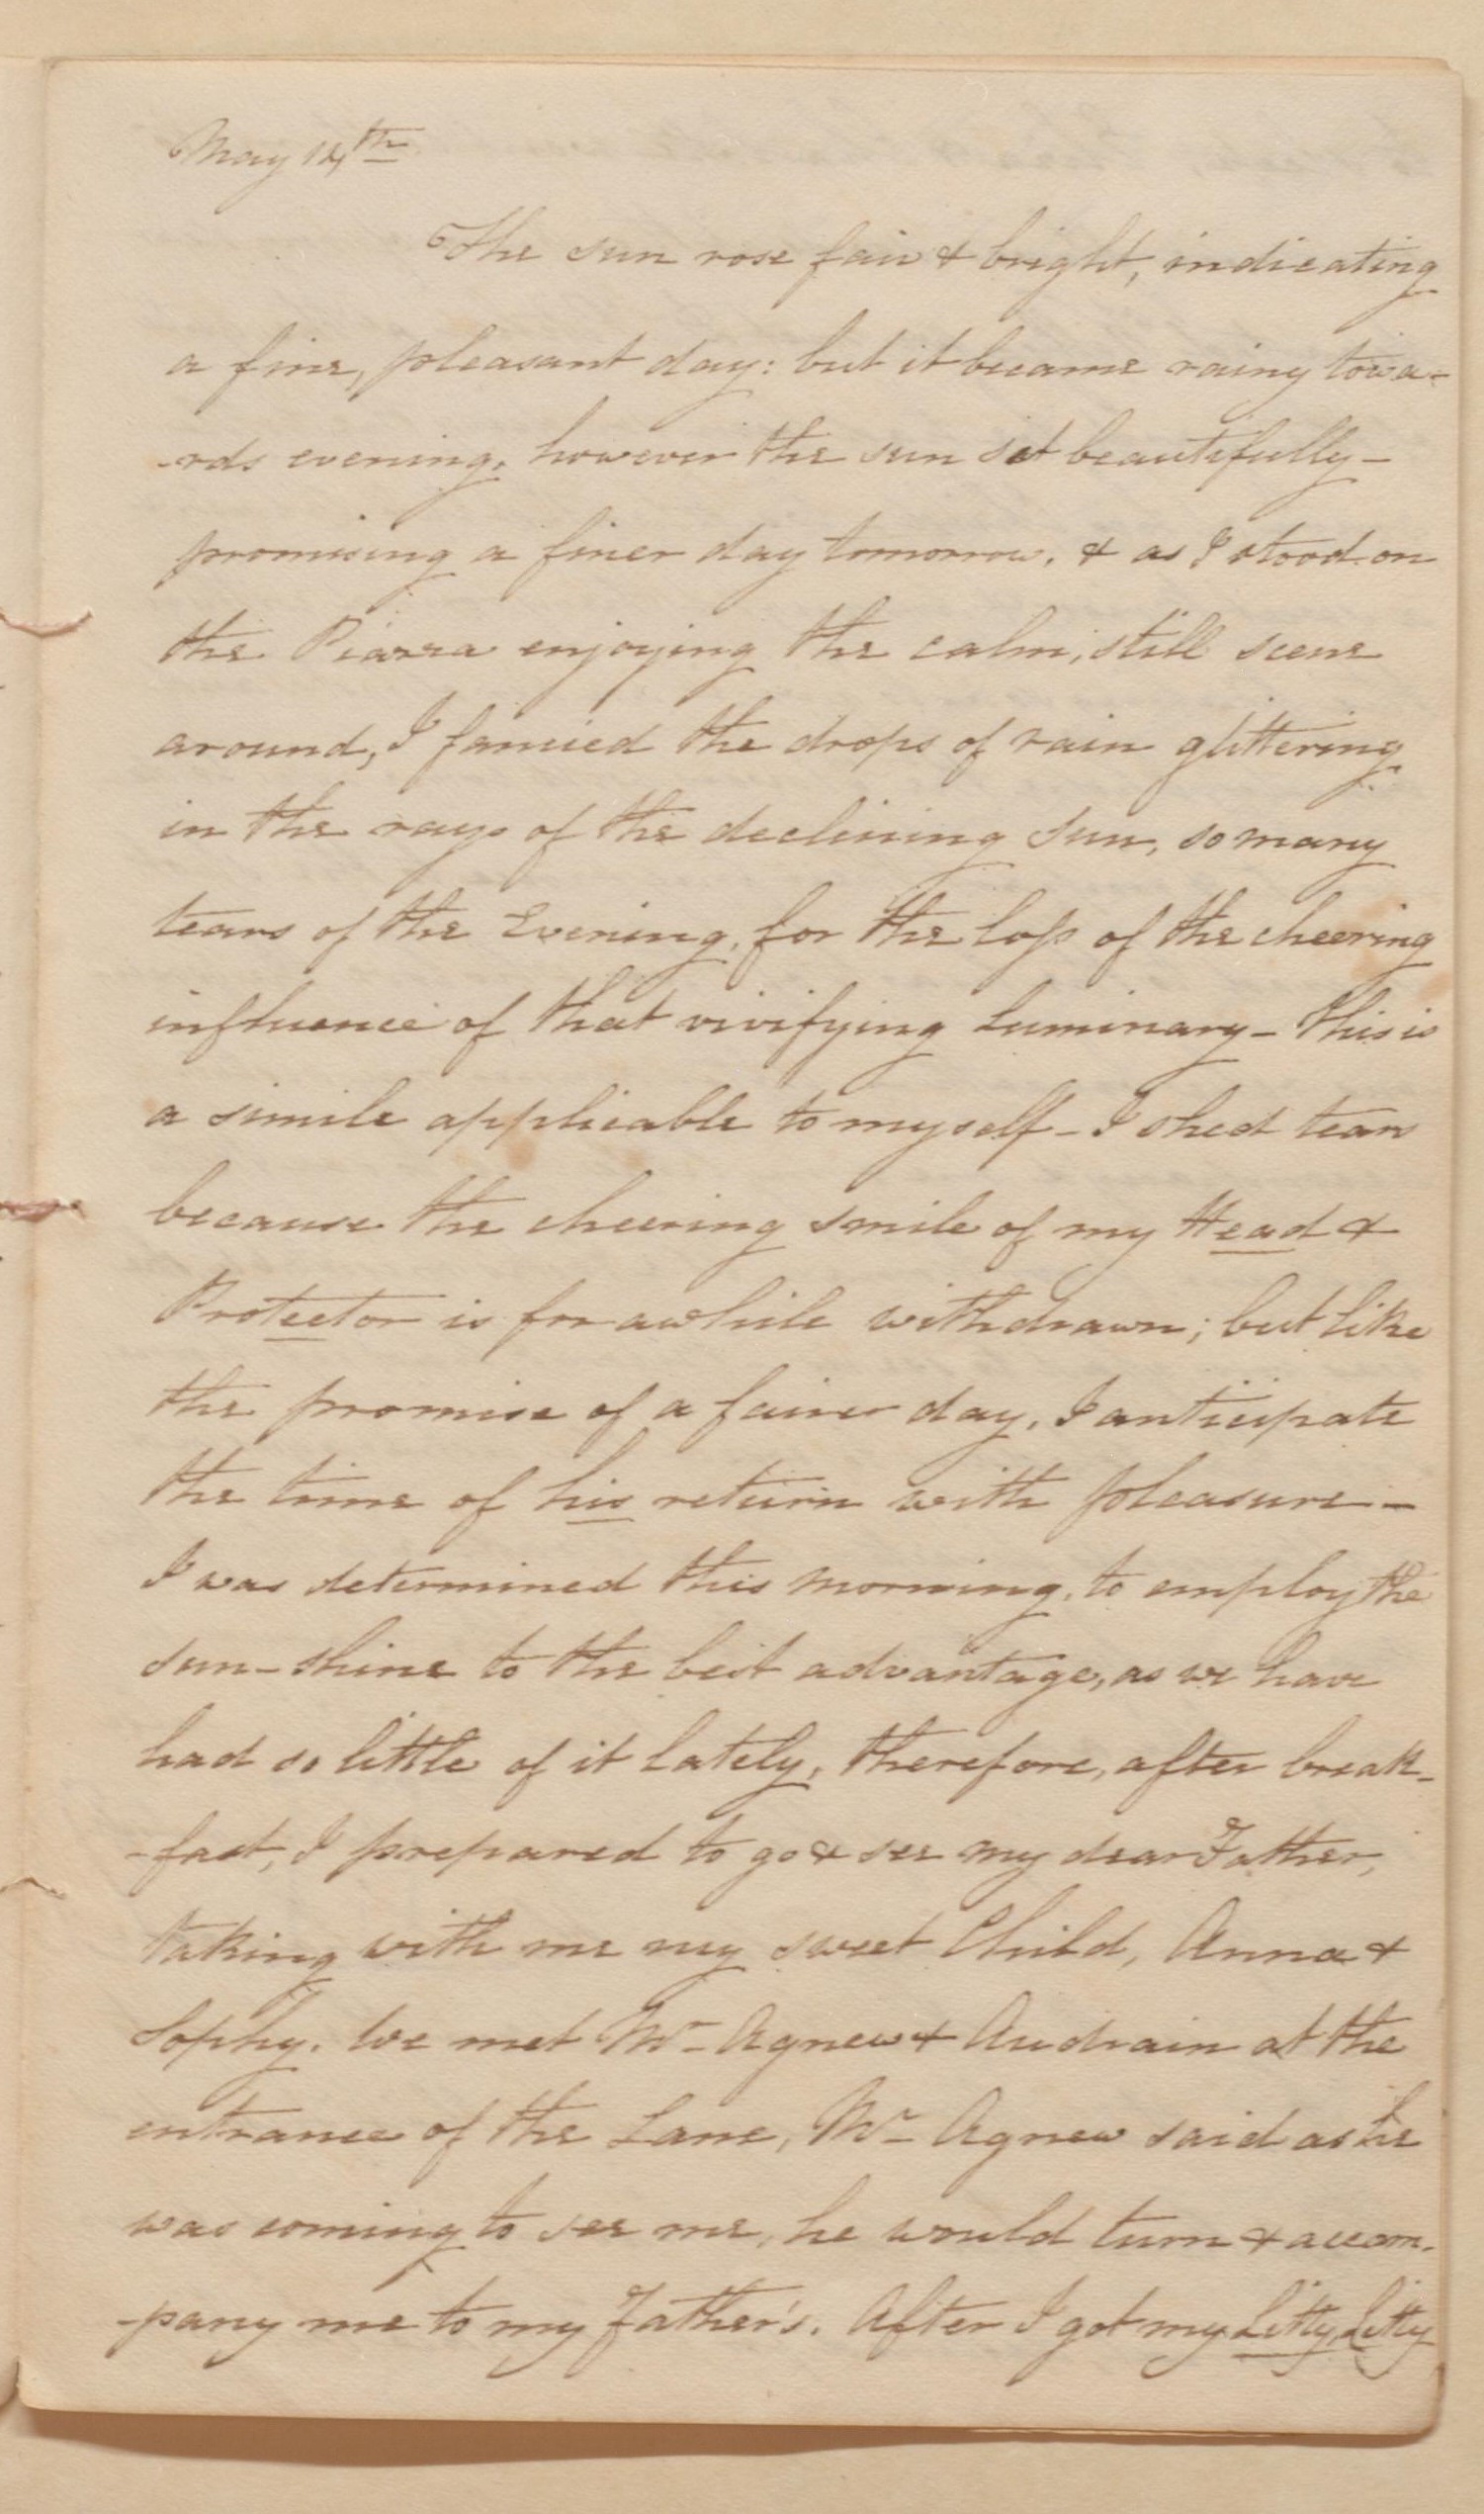 May 14th
The sun rose fair & bright, indicating
a fine, pleasant day: but it became rainy towa-
-rds evening, however the sun set beautifully -
promising a finer day tomorrow. & as I stood on
the Piazza enjoying the calm, still scene
around, I fancied the drops of rain glittering
in the rays of the declining sun, so many
tears of the Evening, for the loss of the cheering
influence of that vivifying Luminary - this is
a simile applicable to myself - I shed tears
because the cheering smile of my Head &
Protector is for awhile withdrawn; but like
the promise of a fairer day, I anticipate
the time of his return with pleasure -
I was determined this morning, to employ the
sun-shine to the best advantage, as we have
had so little of it lately, therefore, after break-
-fast, I prepared to go & see my dear Father,
taking with me my sweet Child, Anna &
Sophy. We met Mr Agnew & Audrain at the
entrance of the Lane, Mr Agnew said as he
was coming to see me, he would turn & accom-
-pany me to my Father's. After I got my Litty Litty